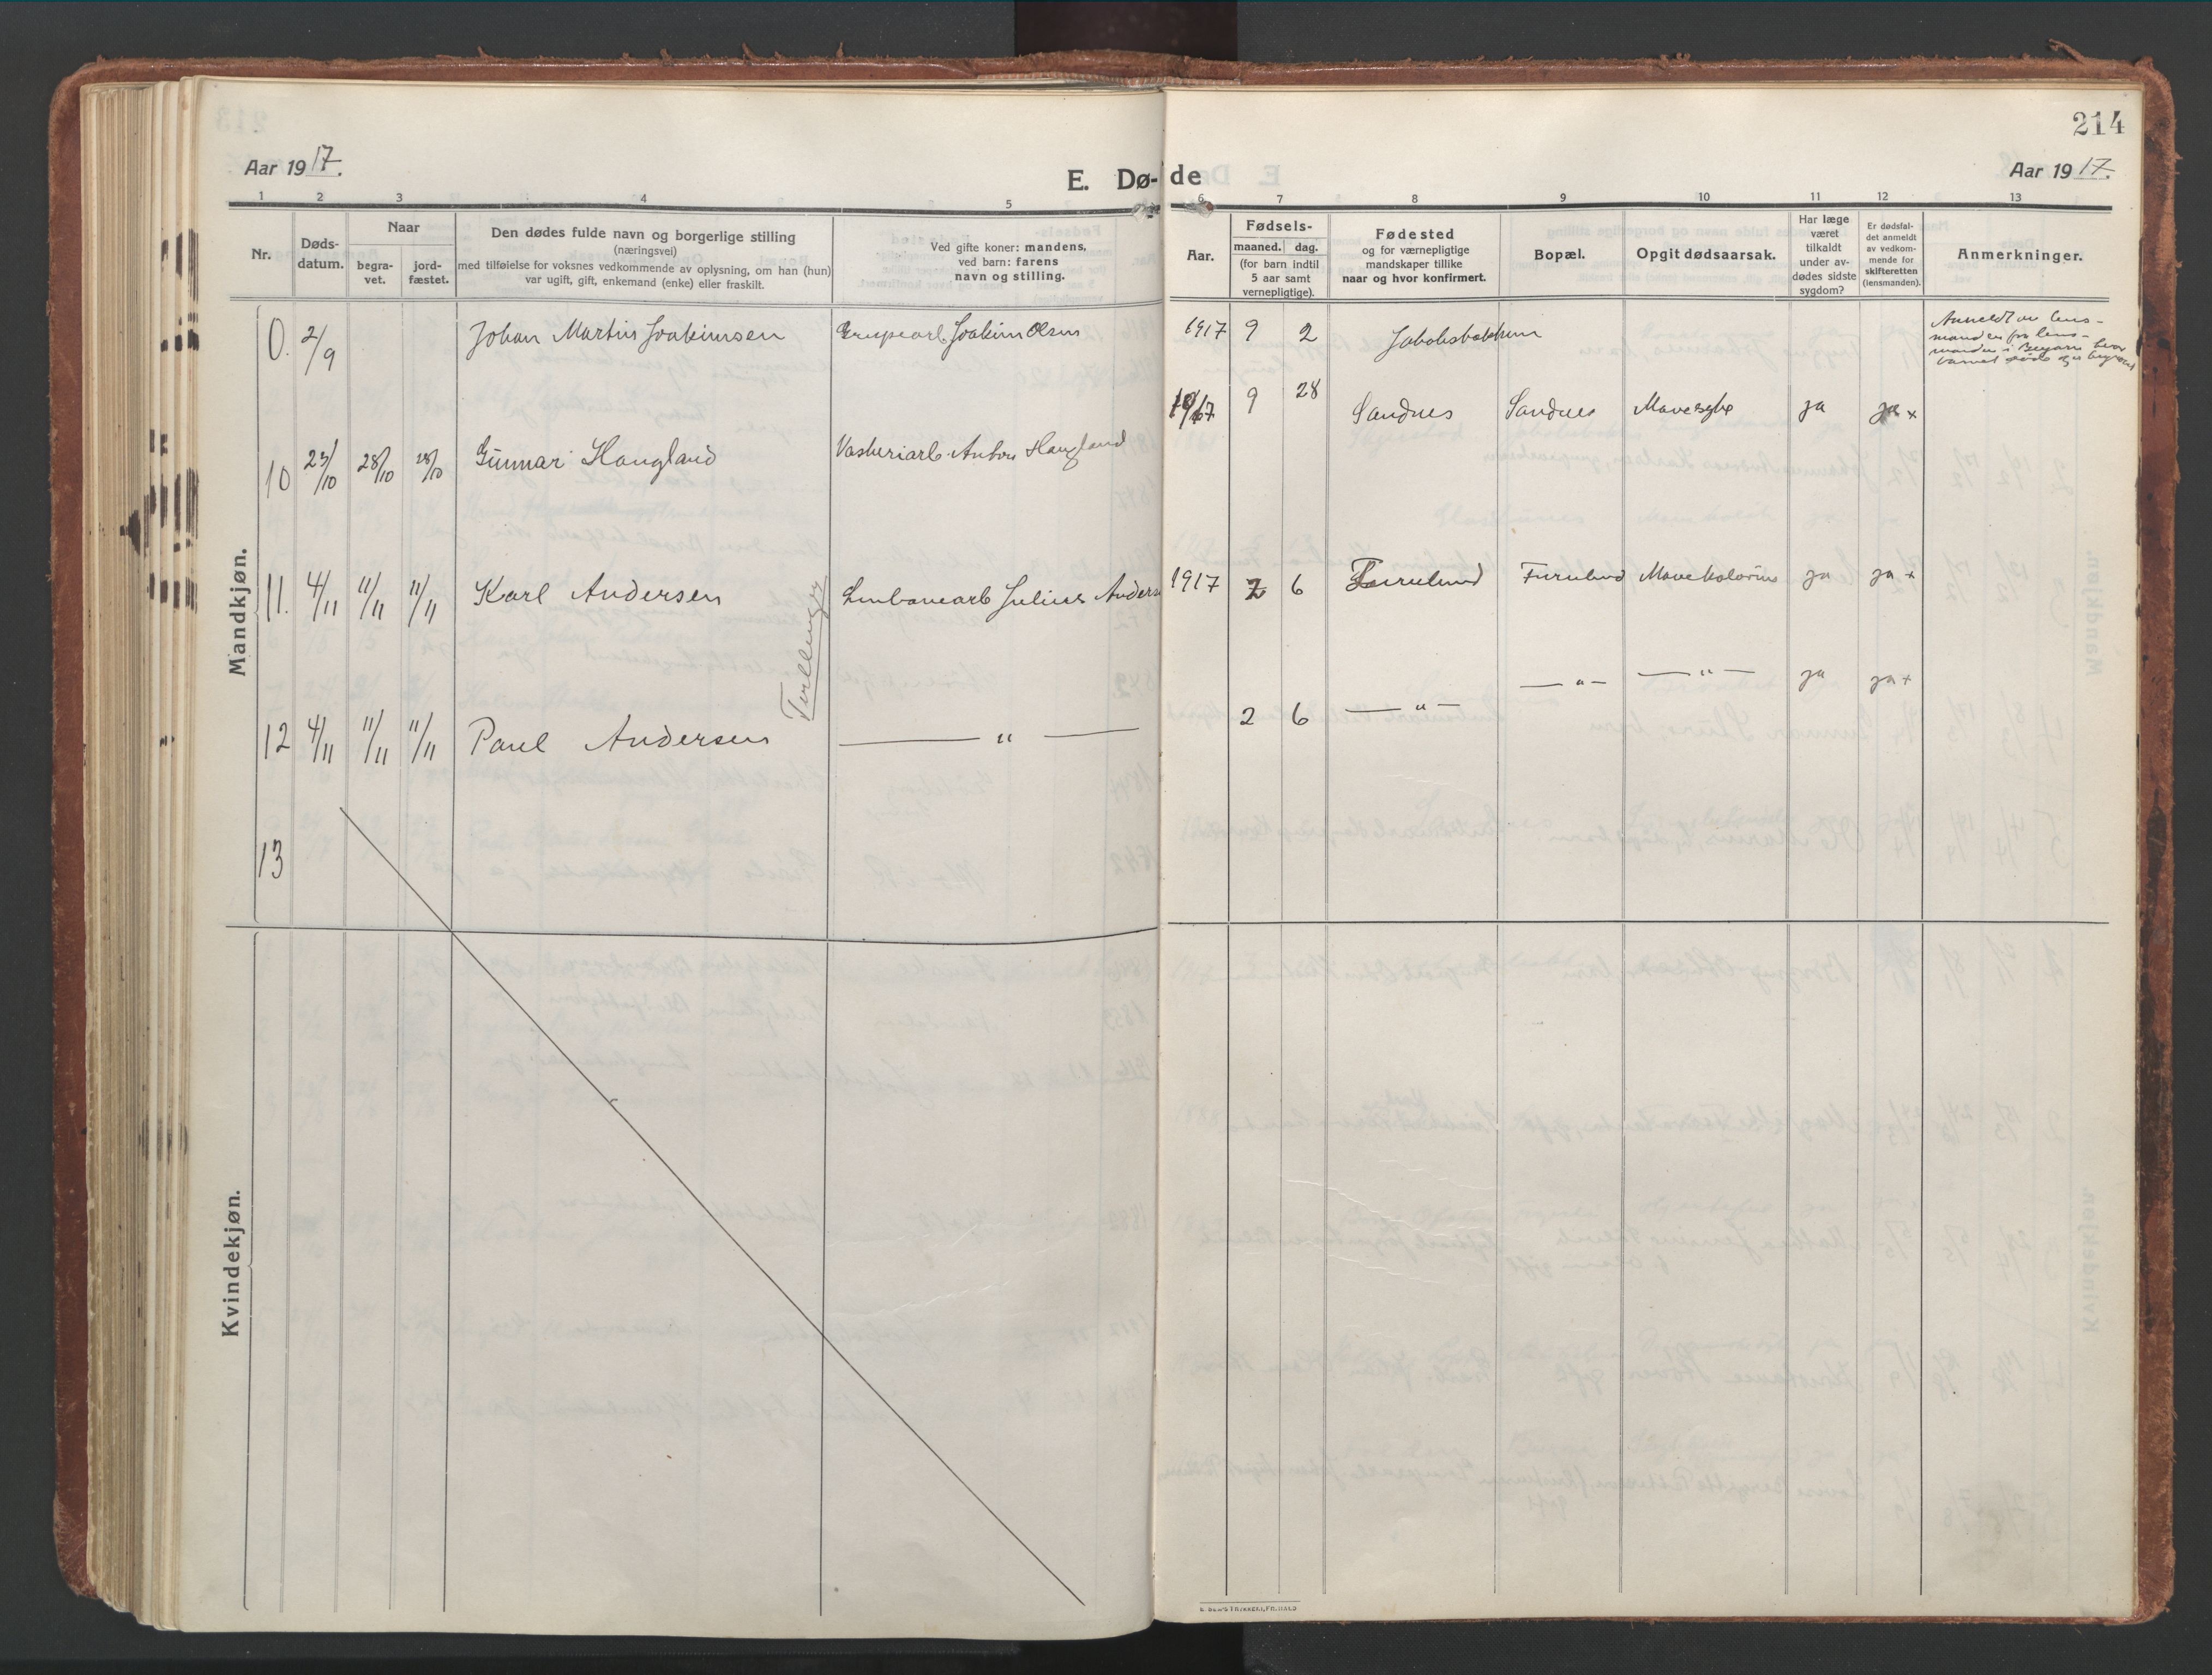 214
Aar 1917.
E. Dø-de
Aar 1917.
1 2 3 4 5 6 7 8 9 10 11 12 13
Nr.
Døds-
datum.
Naar
begra-
vet.
jord-
fæstet.
Den dødes fulde navn og borgerlige stilling
(næringsvei)
med tilføielse for voksnes vedkommende av oplysning, om han (hun)
var ugift, gift, enkemand (enke) eller fraskilt.
Ved gifte koner: mandens,
ved barn: farens
navn og stilling.
Aar.
Fødsels-
maaned. dag.
(for barn indtil
5 aar samt
vernepligtige).
Fødested
og for værnepligtige
mandskaper tillike
naar og hvor konfirmert.
Bopæl.
Opgit dødsaarsak.
Har læge
været
tilkaldt
under av-
dødes sidste
sygdom?
Er dødsfal-
det anmeldt
av vedkom-
mende for
skifteretten
(lensmanden).
Anmerkninger.
Mandkjøn.
0. 2/9 Johan Martin Joakimsen Grupearb Joakim Olsen 1917 9 2 Jakobsbakken
Anmeldt av lens-
manden fra lens-
manden i Beyarn hvor
barnet døde og er begravet
10 23/10 28/10 28/10 Gunnar Haugland Vaskeriarb. Anton Haugland 1917 9 28 Sandnes Sandnes Mavesyke ja ja +
11. 4/11 11/11 11/11 Karl Andersen Linbanearb Julius Anders 1917 2 6 Furulund Furulund Mavekolerine ja ja +
Tvillinger
12 4/11 11/11 11/11 Paul Andersen — " — 2 6 — " — — " — — " — ja ja +
13
Kvindekjøn.